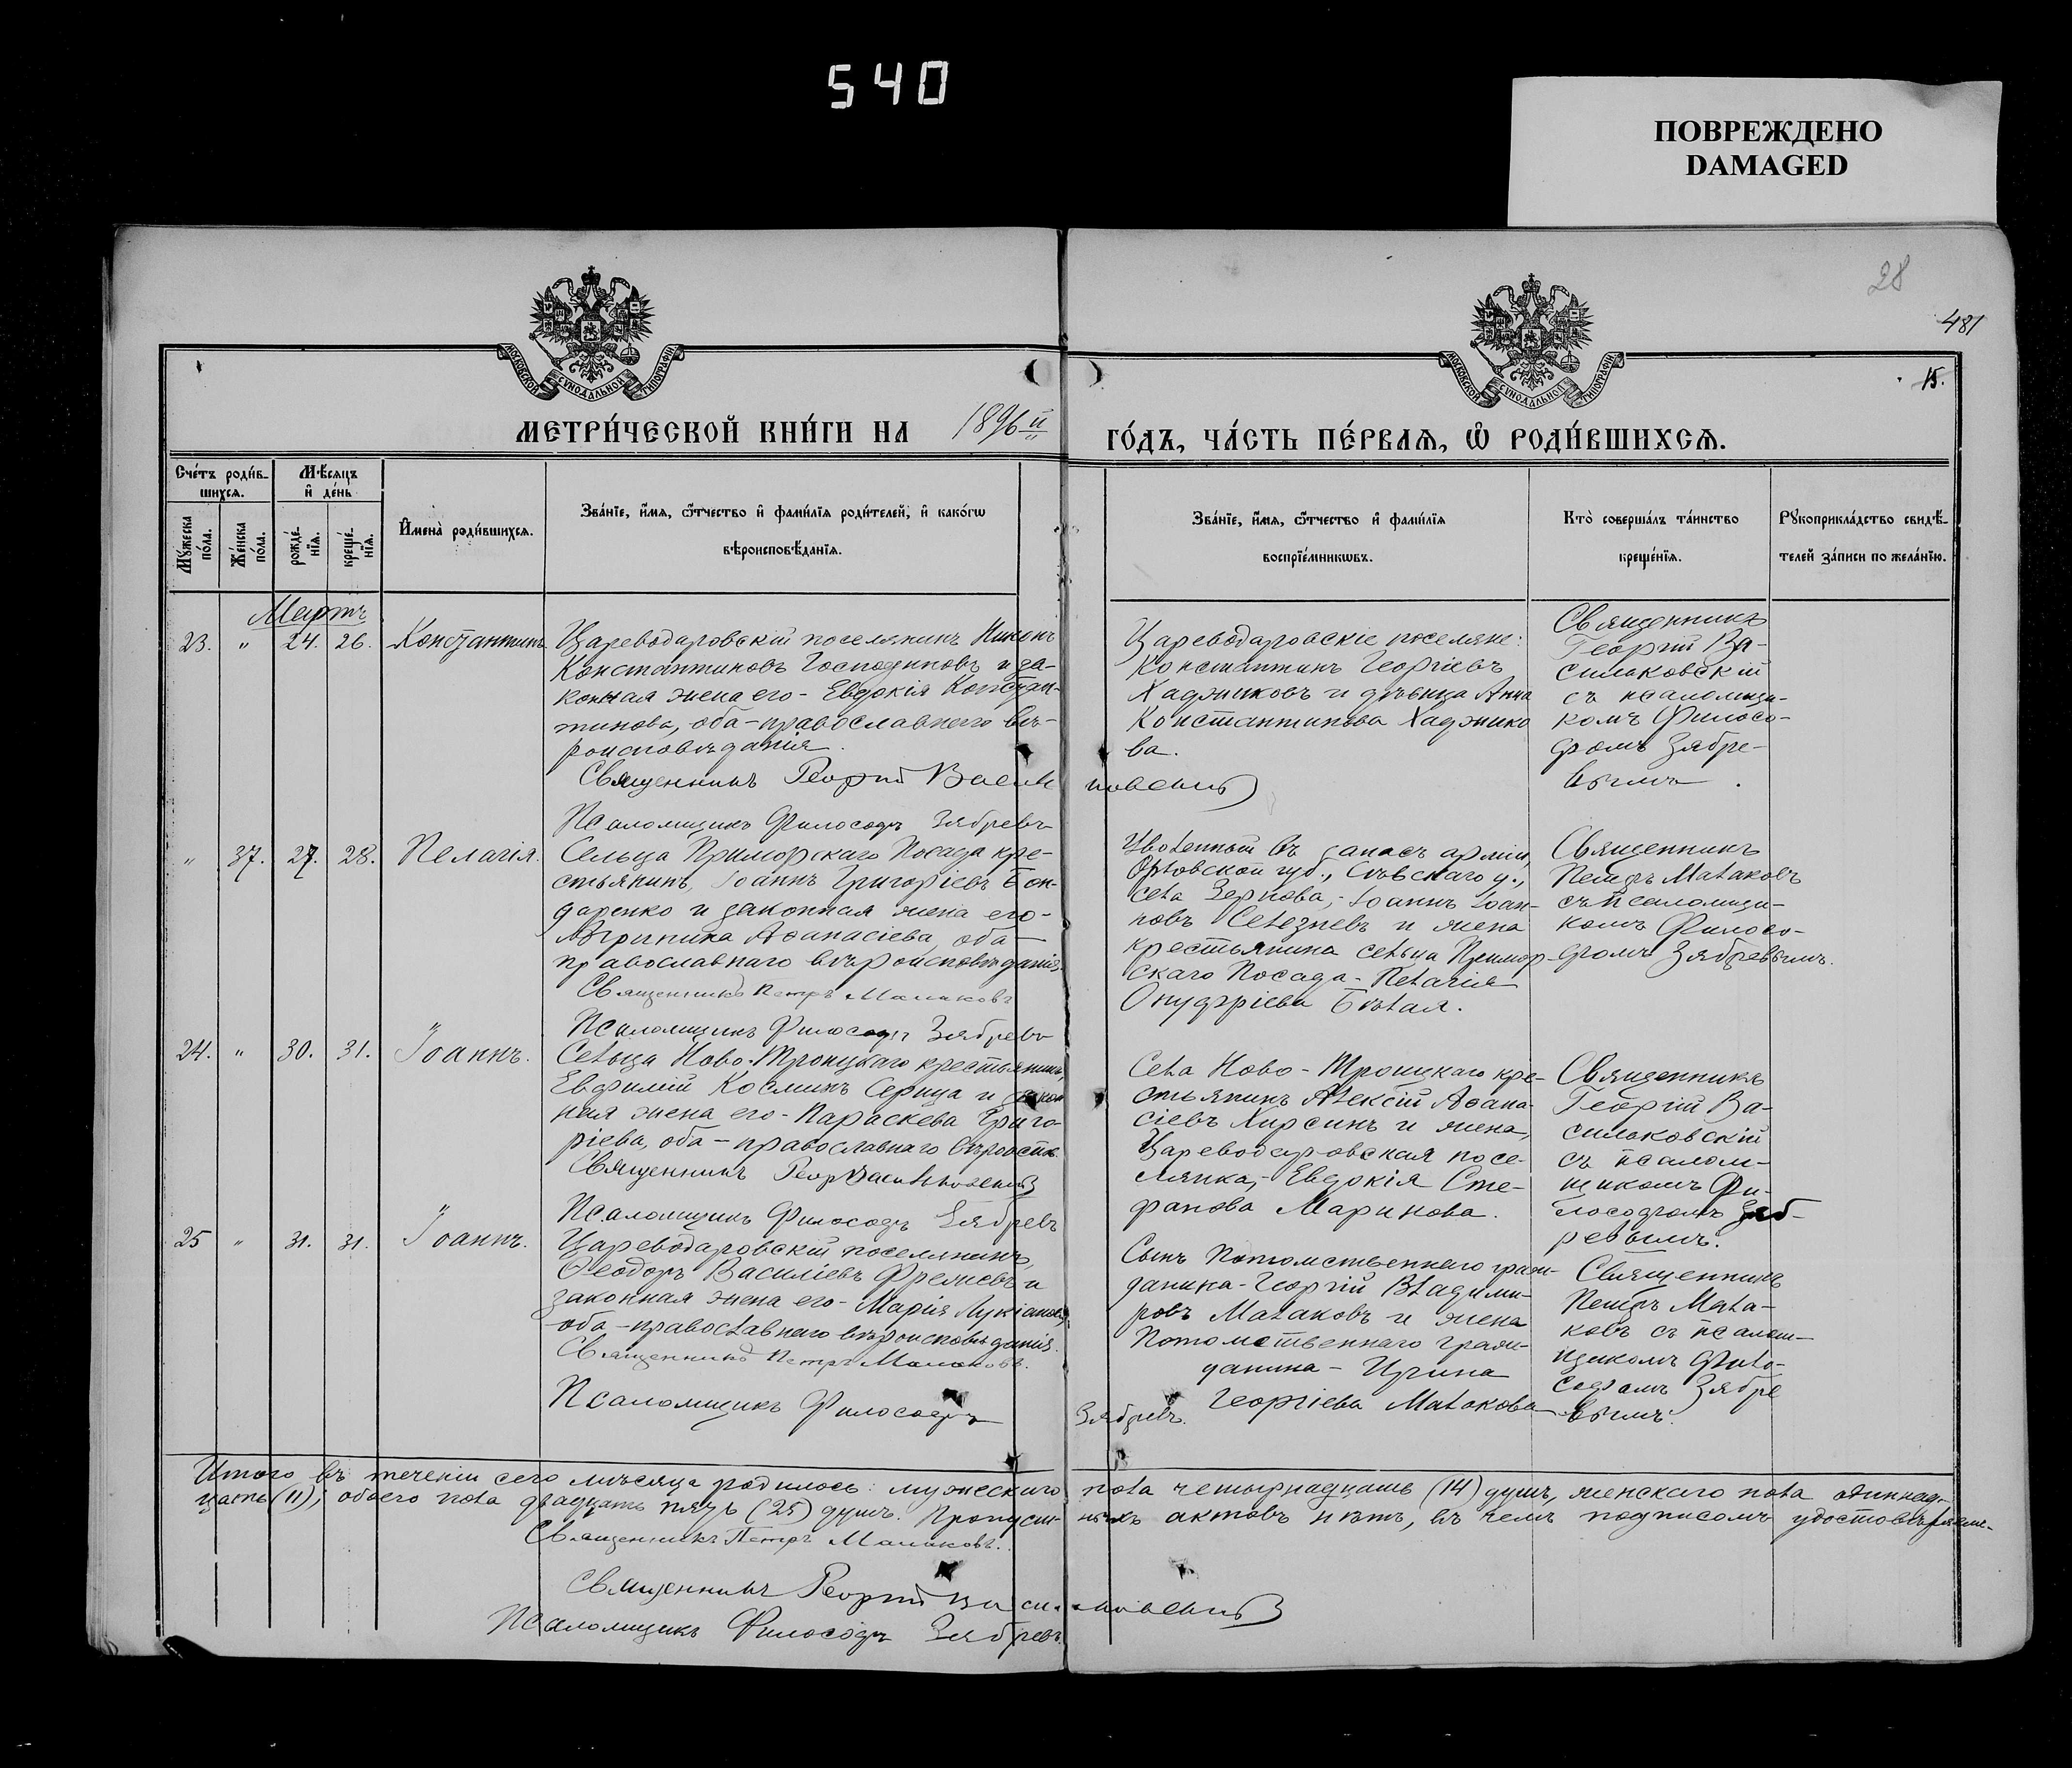 540
ПОВРЕЖДЕНО
DAMAGED
28
481
15.
МОСКОВСКОЙ СУНОДАЛЬНОЙ ТИПОГРАФІИ
МОСКОВСКОЙ СУНОДАЛЬНОЙ ТИПОГРАФІИ
МЕТРИ́ЧЕСКОЙ КНИ́ГИ НА 1896й
ГО́ДЪ, ЧА́СТЬ ПЕ́РВАѦ, Ѡ҆ РОДИ́ВШИХСѦ.
Сче́тъ роди́в-
шихсѧ.
Мѣ́сѧцъ
и҆ де́нь
Мꙋ́жеска по́ла.
Же́нска по́ла.
рожде́-
нїѧ.
креще́-
нїѧ.
И҆мена̀ роди́вшихсѧ.
Зва́нїе, и҆́мѧ, ѻ҆́тчество и҆ фами́лїѧ роди́телей, и҆ како́гѡ
вѣроисповѣ́данїѧ.
Зва́нїе, и҆́мѧ, ѻ҆́тчество и҆ фами́лїѧ
воспрїе́мникѡвъ.
Кто̀ соверша́лъ та́инство
креще́нїѧ.
Рꙋкоприкла́дство свидѣ́-
телей за́писи по жела́нїю.
Мартъ
23. " 24. 26. Константинъ
Цареводаровскій поселянинъ Никонъ
Константиновъ Господиновъ и за-
конная жена его - Евдокія Констан-
тинова, оба - православнаго вѣ-
роисповѣданія.
Священникъ Георгій Василь
ковскій
Псаломщикъ Философъ Зябревъ
Цареводаровскіе поселяне:
Константинъ Георгіевъ
Хаджиковъ и дѣвица Анна
Константинова Хаджико
ва.
Священникъ
Георгій Ва-
сильковскій
съ псаломщи-
комъ Филосо-
фомъ Зябре-
вымъ.
" 37. 27. 28. Пелагія.
Сельца Приморскаго Посада кре-
стьянинъ, Іоаннъ Григоріевъ Бон-
даренко и законная жена его -
Агрипина Аѳанасіева, оба -
православнаго вѣроисповѣданія.
Священникъ Петръ Малаковъ
Псаломщикъ Философъ Зябревъ
Уволенный въ запасъ арміи,
Орловской губ., Сѣвскаго у.,
села Зернова, - Іоаннъ Іоан-
новъ Селезневъ и жена
крестьянина сельца Примор-
скаго Посада - Пелагія
Онуфріева Бѣлая.
Священникъ
Петръ Малаковъ
съ псаломщи-
комъ Филосо-
фомъ Зябревымъ.
24. " 30. 31. Іоаннъ.
Сельца Ново-Троицкаго крестьянинъ,
Евфимій Косминъ Серица и закон
ная жена его - Параскева Григо-
ріева, оба - православнаго вѣроисп.
Священникъ Геор Васильковскій
Псаломщикъ Философъ Зябревъ
Села Ново-Троицкаго кре-
стьянинъ Алексій Аѳана-
сіевъ Хирсинъ и жена,
Цареводаровская посе-
лянка, - Евдокія Сте-
фанова Маринова.
Священникъ
Георгій Ва-
сильковскій
съ псалом-
щикомъ Фи-
лософомъ Зяб-
ревымъ.
25 " 31. 31. Іоаннъ.
Цареводаровскій поселянинъ,
Ѳеодоръ Василіевъ и
законная жена его - Марія Лукіанова,
оба - православнаго вѣроисповѣданія.
Священникъ Петръ Малаковъ.
Псаломщикъ Философъ
Зябревъ.
Сынъ Потомственнаго граж-
данина - Георгій Владими-
ровъ Малаковъ и жена
Потомственнаго граж-
данина - Ирина
Георгіева Малакова
Священникъ
Петръ Мала-
ковъ съ псалом-
щикомъ Фило-
софомъ Зябре
вымъ.
Итого въ теченіи сего мѣсяца родилось: мужескаго пола четырнадцать (14) душъ, женскаго пола одиннад-
цать (11); обоего пола двадцать пять (25) душъ. Пропущенныхъ актовъ нѣтъ, въ чемъ подписомъ удостовѣряемъ.
Священникъ Петръ Малаковъ.
Священникъ Георгій Васильковскій
Псаломщикъ Философъ Зябревъ.